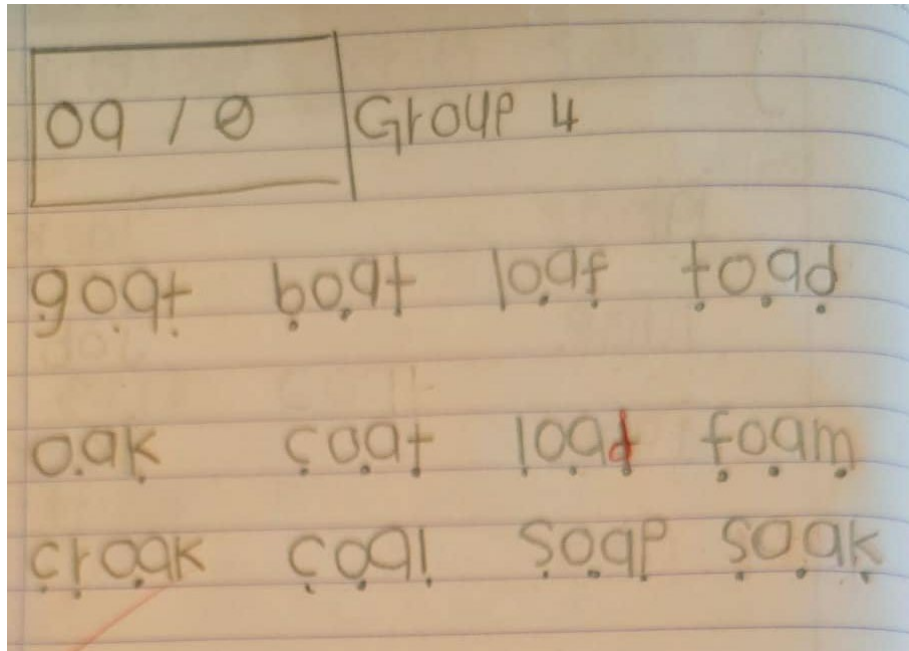 oa / ɵ Group 4
goat boat loaf toad
oak coat load foam
croak coal soap soak